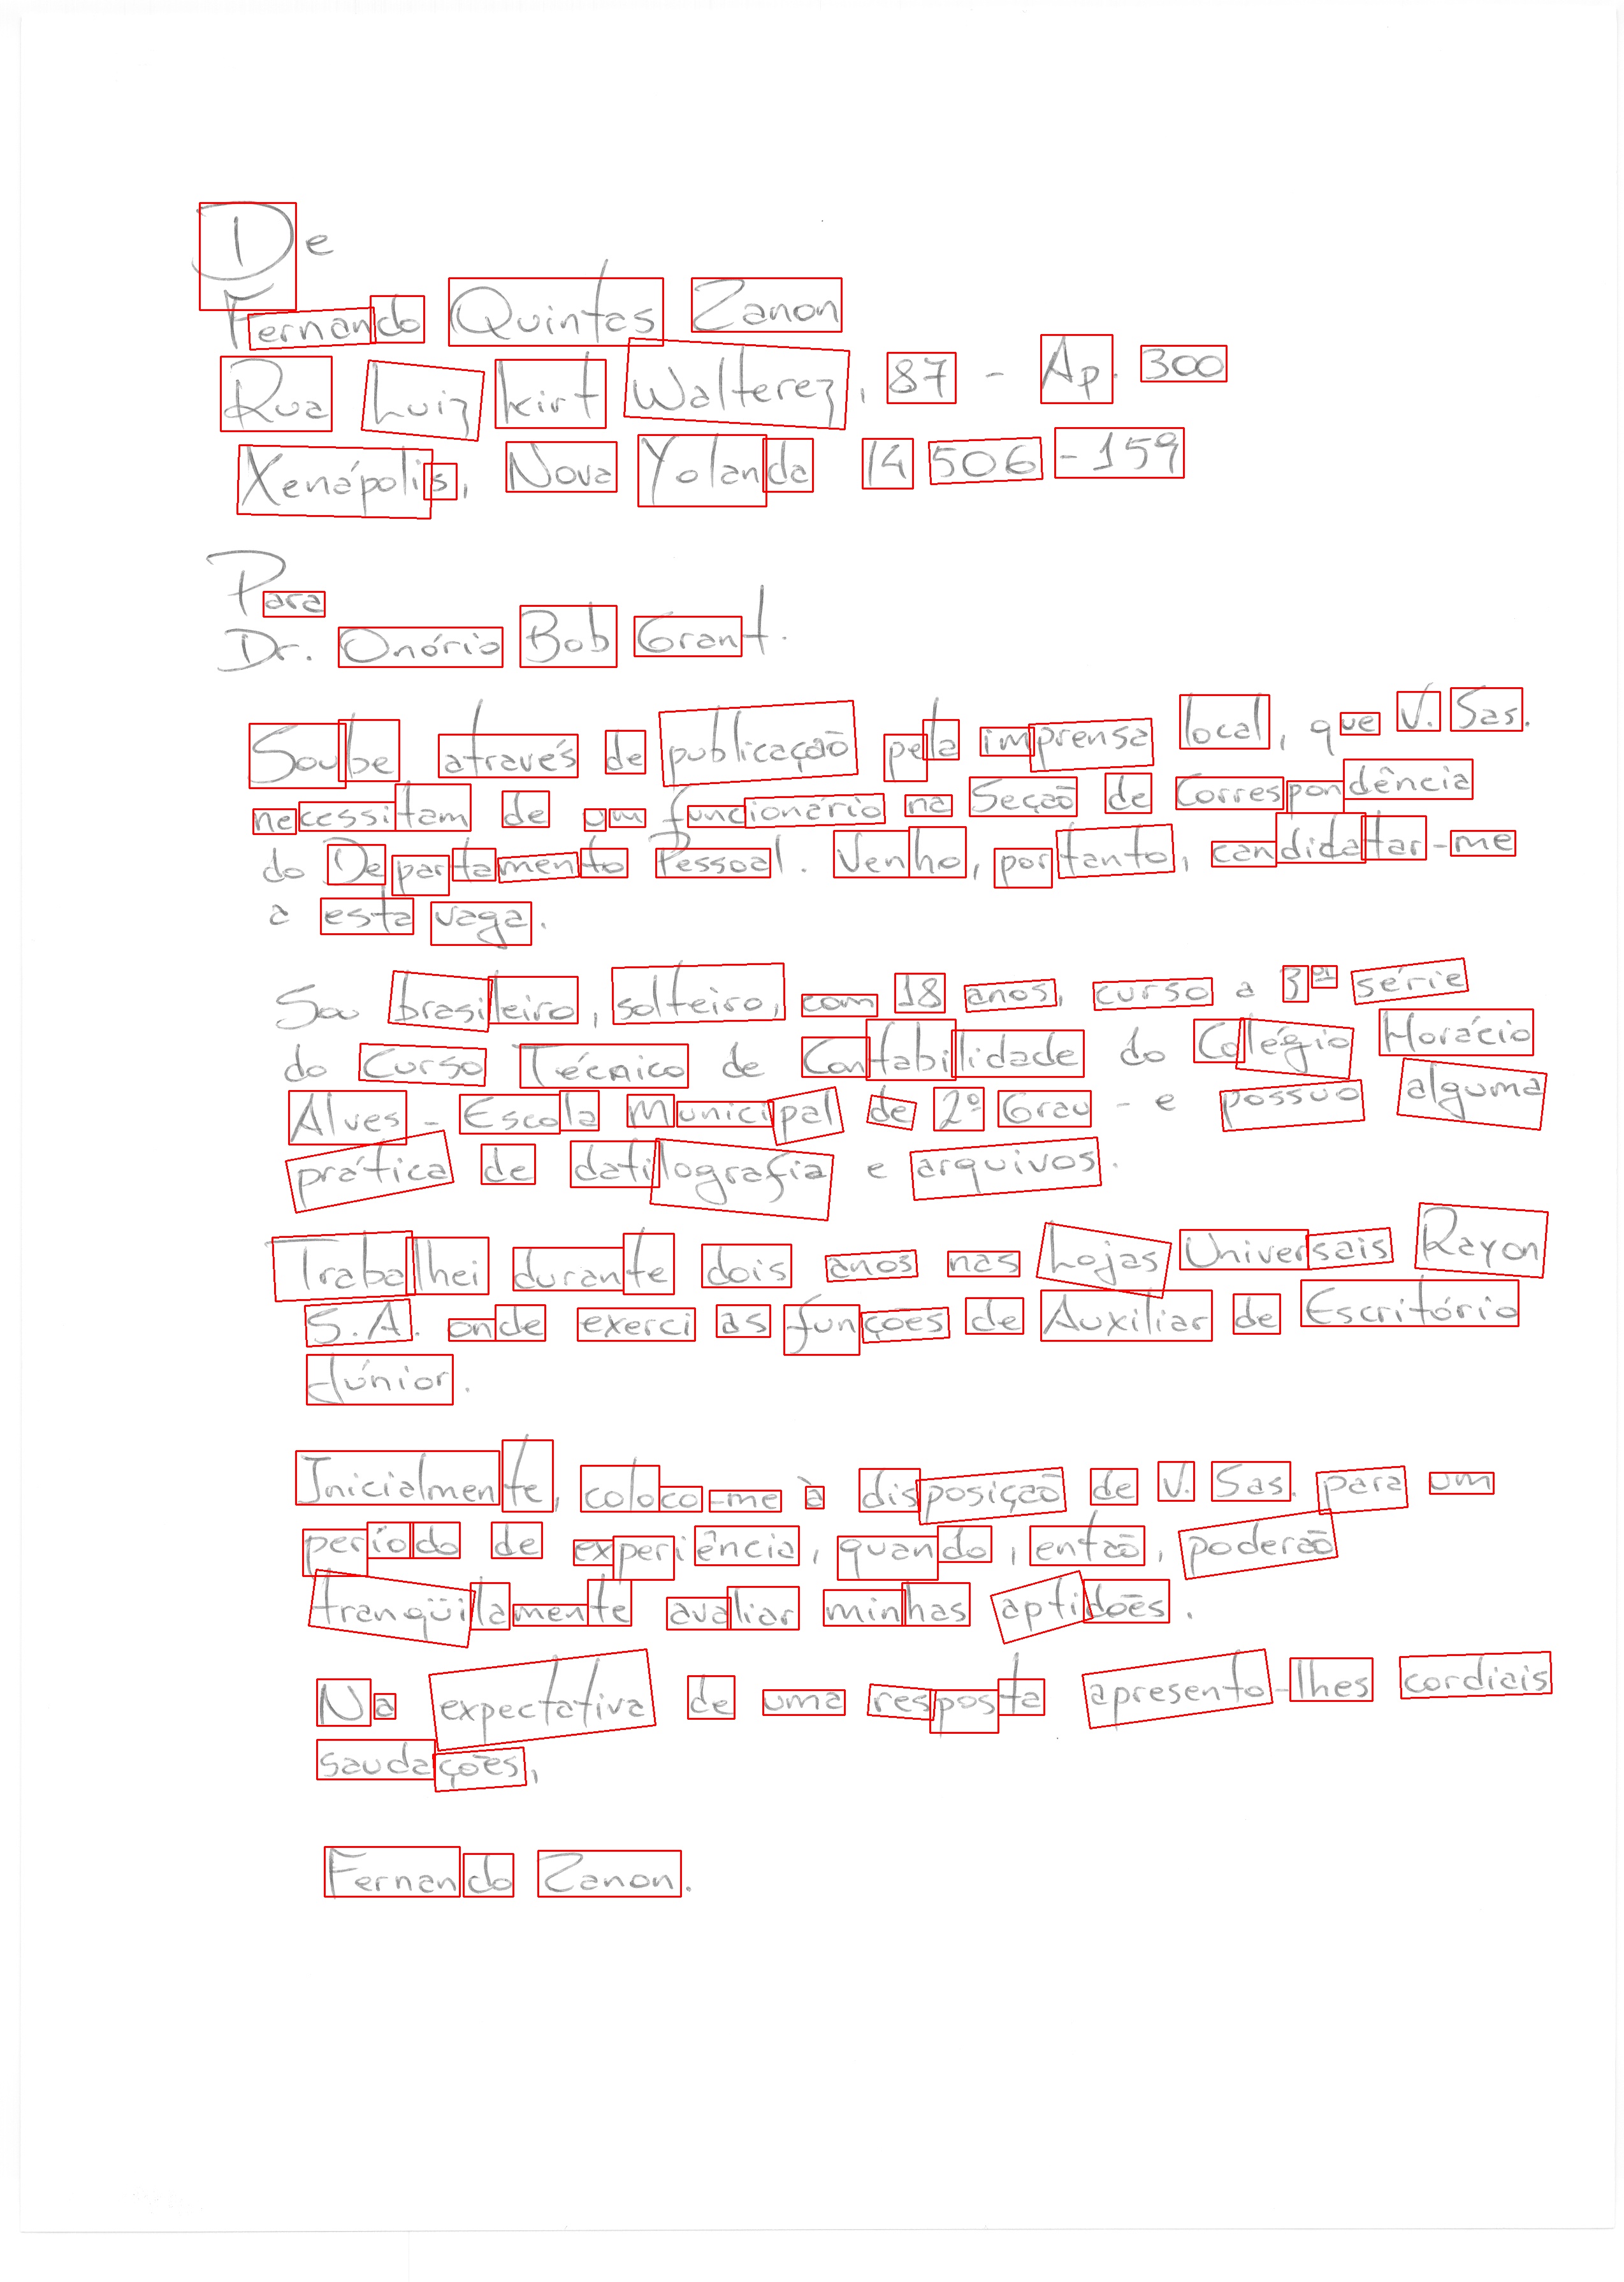 De
Fernando Quintas Zanon
Rua Luiz Kirt Walterez, 87 - Ap. 300
Xenápolis, Nova Yolanda 14506-159
Para
Dr. Onório Bob Grant.
Soube através de publicação pela imprensa local, que V. Sas.
necessitam de um funcionário na Seção de Correspondência
do Departamento Pessoal. Venho, portanto, candidatar-me
a esta vaga.
Sou brasileiro, solteiro, com 18 anos, curso a 3ª série
do Curso Técnico de Contabilidade do Colégio Horácio
Alves - Escola Municipal de 2º Grau - e possuo alguma
prática de datilografia e arquivos.
Trabalhei durante dois anos nas Lojas Universais Rayon
S.A. onde exerci as funções de Auxiliar de Escritório
Júnior.
Inicialmente, coloco-me à disposição de V. Sas. para um
período de experiência, quando, então, poderão
tranqüilamente avaliar minhas aptidões.
Na expectativa de uma resposta apresento-lhes cordiais
saudações,
Fernando Zanon.